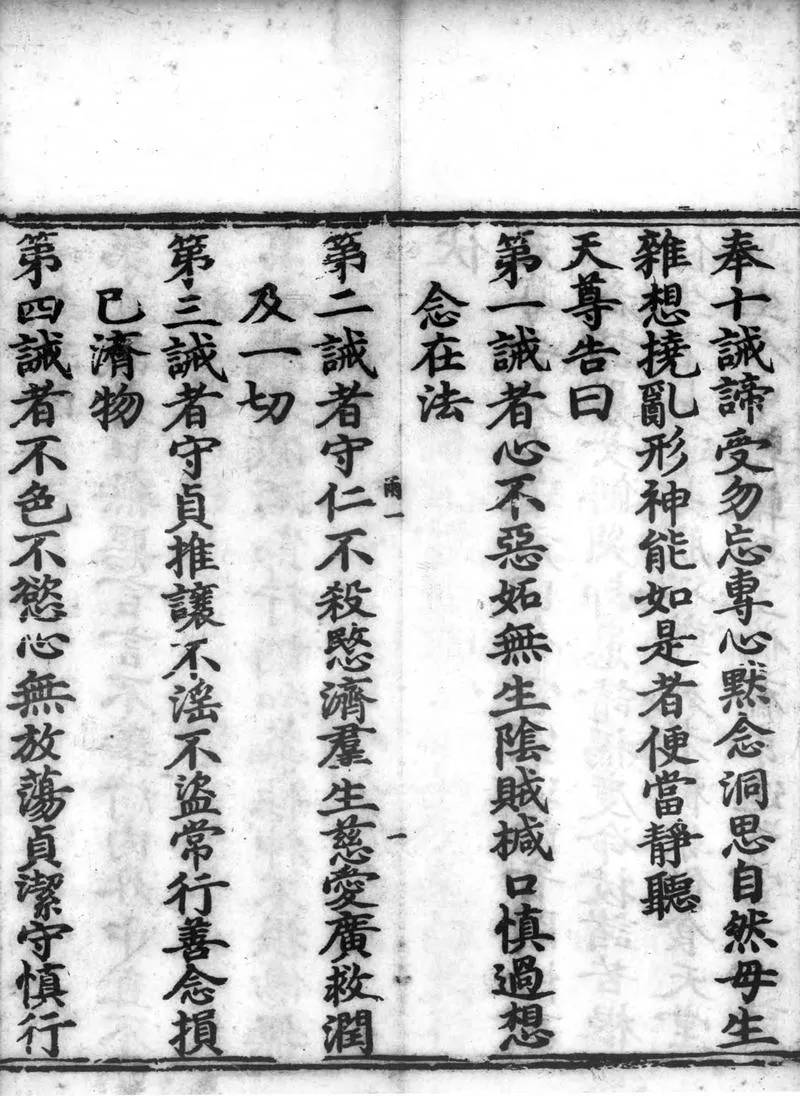 奉十誡諦受勿忘專心默念洞思自然毋生
雜想撓亂形神能如是者便當靜聽
天尊告曰
第一誡者心不惡妬無生陰賊椷口慎過想
念在法
雨一
一
第二誡者守仁不殺愍濟羣生慈愛廣救潤
及一切
第三誡者守貞推讓不淫不盜常行善念損
已濟物
第四誡者不色不慾心無放蕩貞潔守慎行